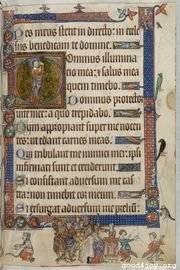 Pes meus stetit in directo: in eccle
siis benedicam te domine.
Dominus illumina
tio mea: et salus mea
quem timebo.
Dominus protector
vite mee: a quo trepidabo.
Dum appropiant super me nocen
tes: ut edant carnes meas.
Qui tribulant me inimici mei: ipsi
infirmati sunt et ceciderunt.
Si consistant adversum me cas
tra: non timebit cor meum.
Si exsurgat adversum me prelium:
good4joy.org